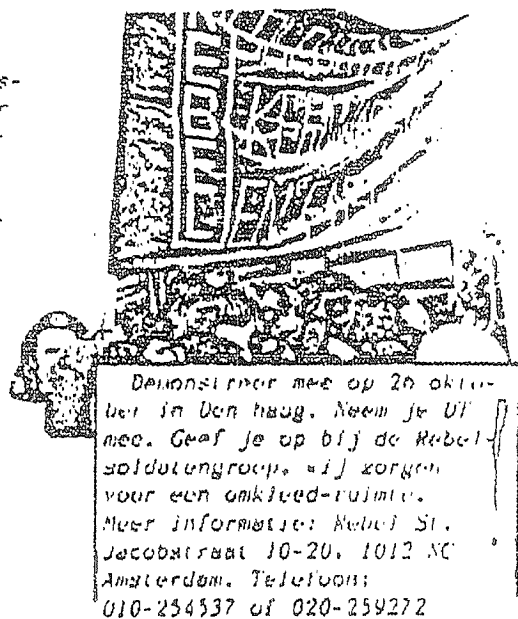 REBEL
Demonstreer mee op 26 okto-
ber in Den haag. Neem je DT
mee. Geef je op bij de Rebel-
soldatengroep, wij zorgen
voor een omkleed-ruimte.
Meer informatie: Rebel St.
Jacobstraat 10-20, 1012 NC
Amsterdam. Telefoon:
010-254537 of 020-259272